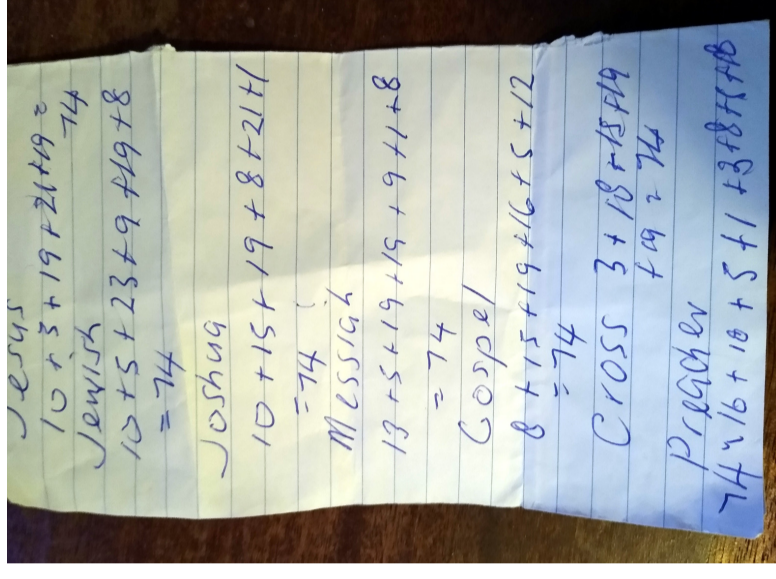 Jesus
10 + 5 + 19 + 21 + 19 =
74
Jewish
10 + 5 + 23 + 9 + 19 + 8
= 74
Joshua
10 + 15 + 19 + 8 + 21 + 1
= 74
Messiah
13 + 5 + 19 + 19 + 9 + 1 + 8
= 74
Gospel
8 + 15 + 19 + 16 + 5 + 12
= 74
Cross 3 + 18 + 15 + 19
+ 19 = 74
Preacher
74 = 16 + 18 + 5 + 1 + 3 + 8 + 5 + 18